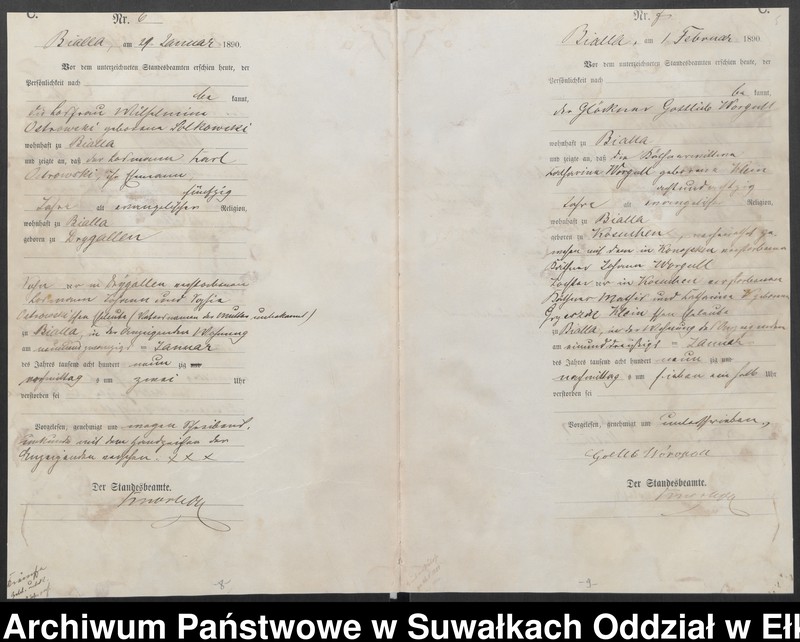 C.
Nr. 6
Bialla, am 29 Januar 1890.
Vor dem unterzeichneten Standesbeamten erschien heute, der
Persönlichkeit nach
be kannt,
die Losfrau Wilhelmine
Ostrowski geborene Solkowski
wohnhaft zu Bialla
und zeigte an, daß der Losmann Karl
Ostrowski, ihr Ehemann
fünfzig
Jahre alt evangelischer Religion,
wohnhaft zu Bialla
geboren zu Drygallen
Sohn der in Drygallen verstorbenen
Losmann Johann und Sophie
Ostrowski'schen Eheleute (Vatersnamen der Mutter unbekannt)
zu Bialla, in der Anzeigenden Wohnung
am neunundzwanzigsten Januar
des Jahres tausend acht hundert neunzig
nachmittag s um zwei Uhr
verstorben sei
Vorgelesen, genehmigt und wegen Schreibens-
unkunde mit dem Handzeichen der
Anzeigenden versehen. x x x
Der Standesbeamte.
-8-
C.
Nr. 7
Bialla, am 1 Februar 1890
Vor dem unterzeichneten Standesbeamten erschien heute, der
Persönlichkeit nach
be kannt,
der Glöckner Gottlieb Worgull
wohnhaft zu Bialla
und zeigte an, daß die
Katharina Worgull geborene Klein
achtundachtzig
Jahre alt evangelischer Religion,
wohnhaft zu Bialla
geboren zu verheirathet ge-
wesen mit dem in verstorbenen
Käthner Johann Worgull
Tochter der in verstorbenen
und Katharina geborene
Klein'schen Eheleute
zu Bialla, in der Wohnung des Anzeigenden
am einunddreißigsten Januar
des Jahres tausend acht hundert neunzig
nachmittag s um sieben ein halb Uhr
verstorben sei
Vorgelesen, genehmigt und unterschrieben
Gottlieb
Der Standesbeamte.
-9-
Archiwum Państwowe w Suwałkach Oddział w Eł